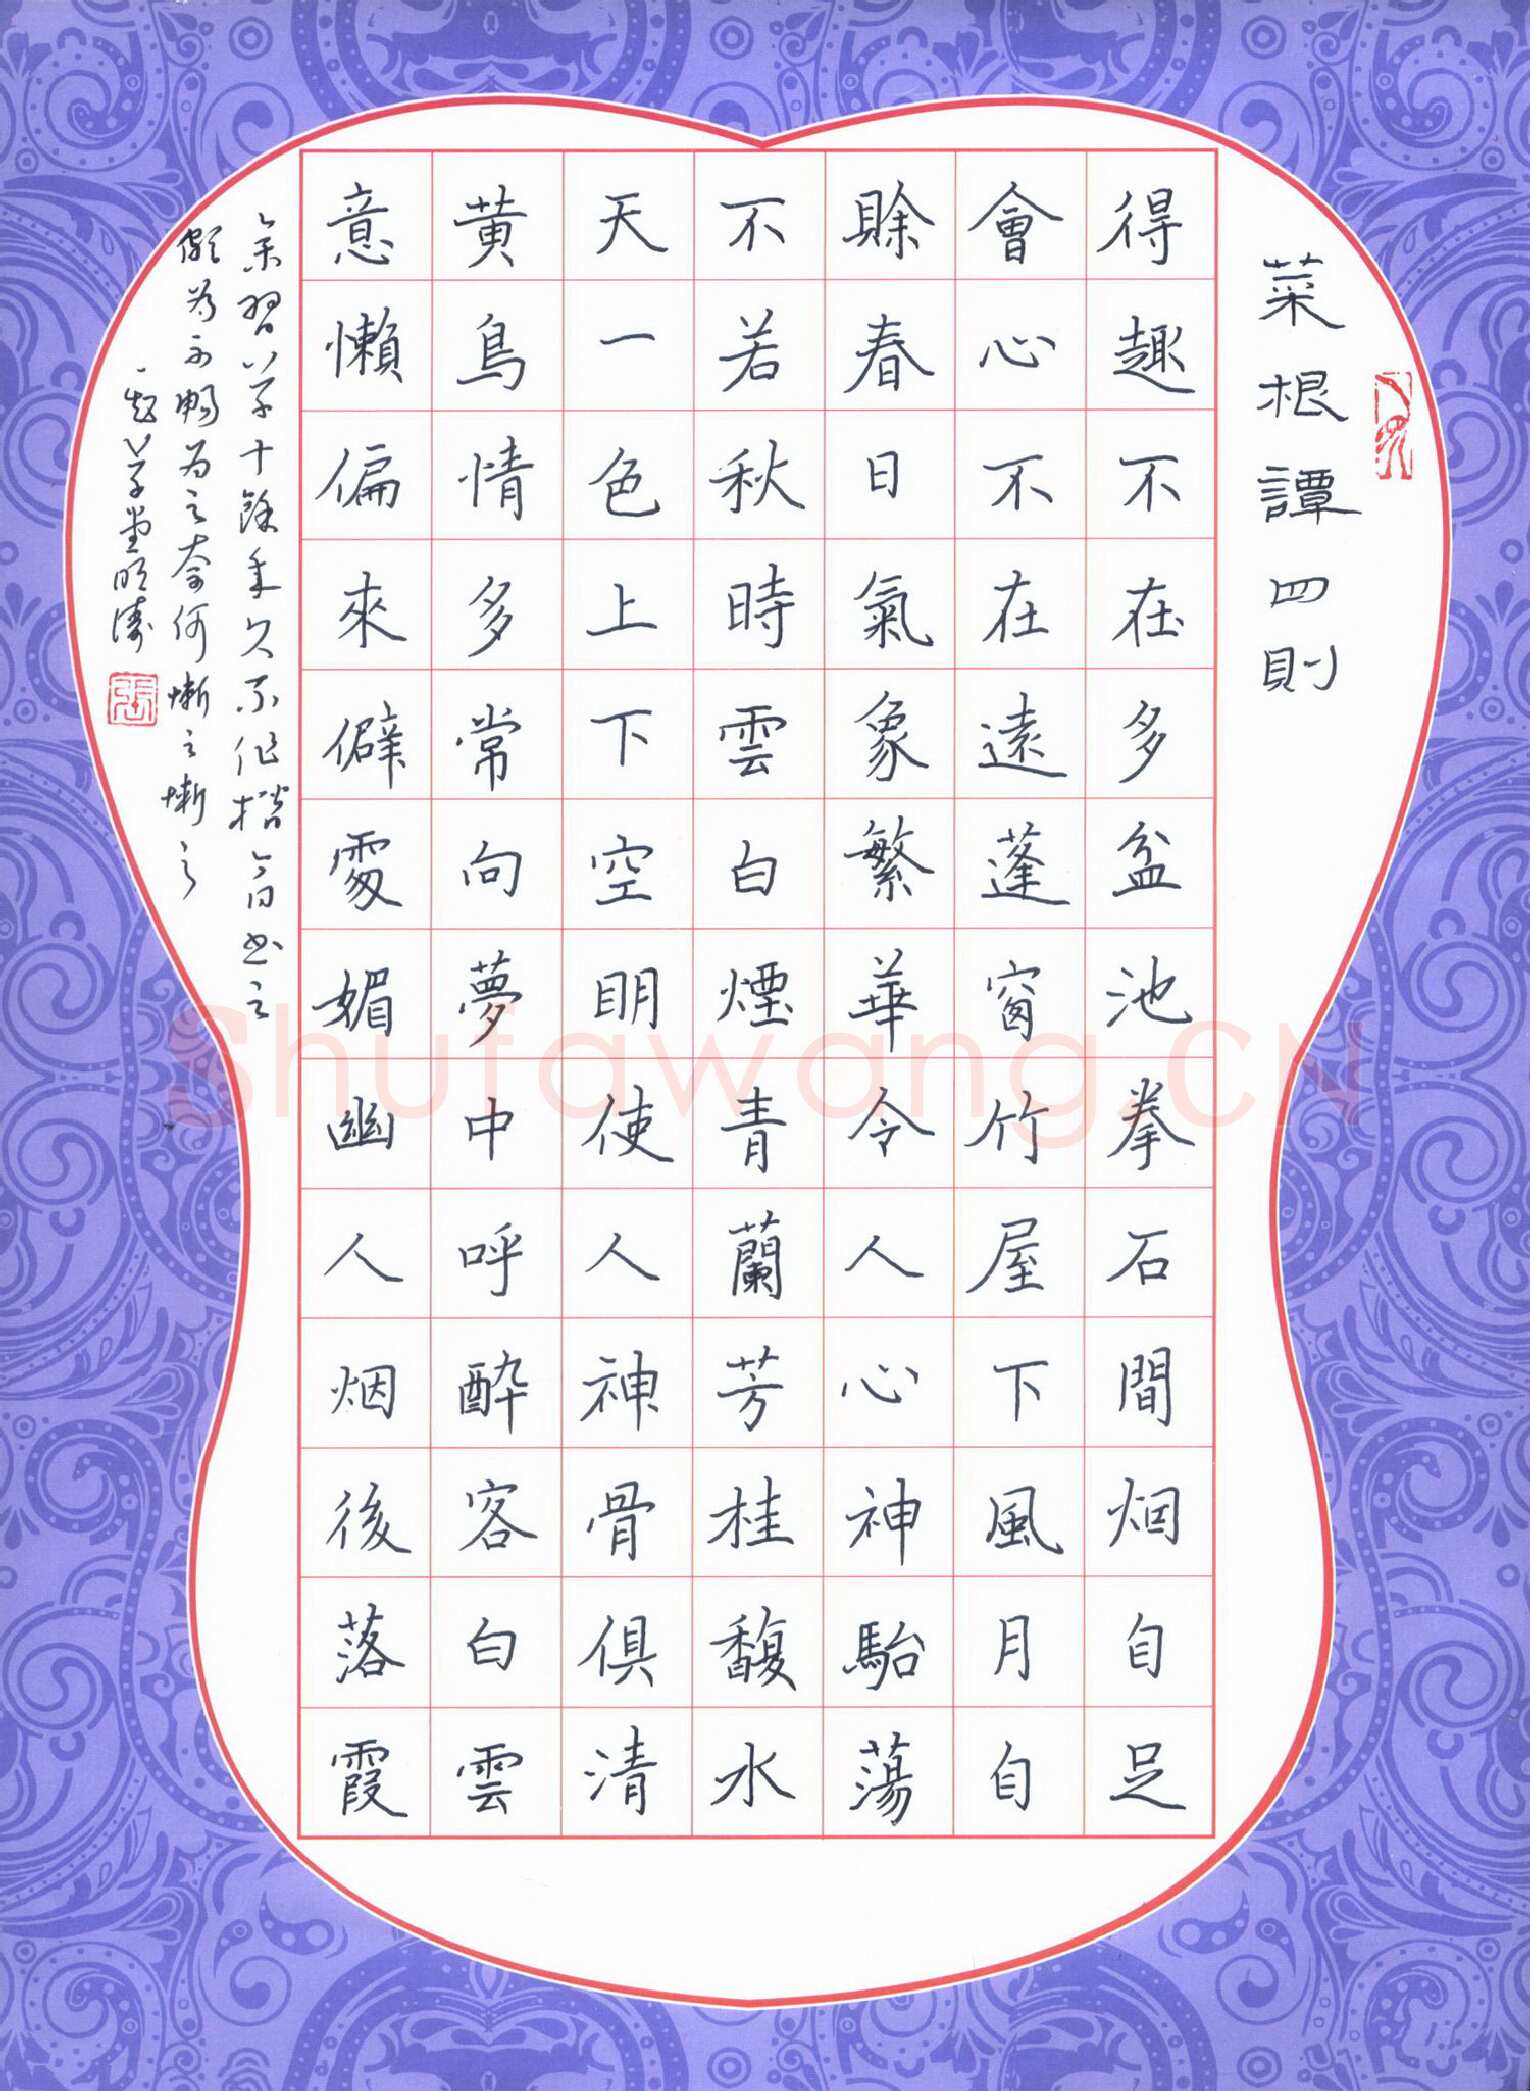 菜根譚四則
得趣不在多盆池拳石間烟自足
會心不在遠蓬窗竹屋下風月自
賖春日氣象繁華令人心神駘蕩
不若秋時雲白煙青蘭芳桂馥水
天一色上下空明使人神骨俱清
黄鳥情多常向夢中呼醉客白雲
意懶偏來僻處媚幽人烟後落霞
余習草十餘年久不作楷今日書之
為之奈何慚之慚之
草堂明濤
Shufawang.CN